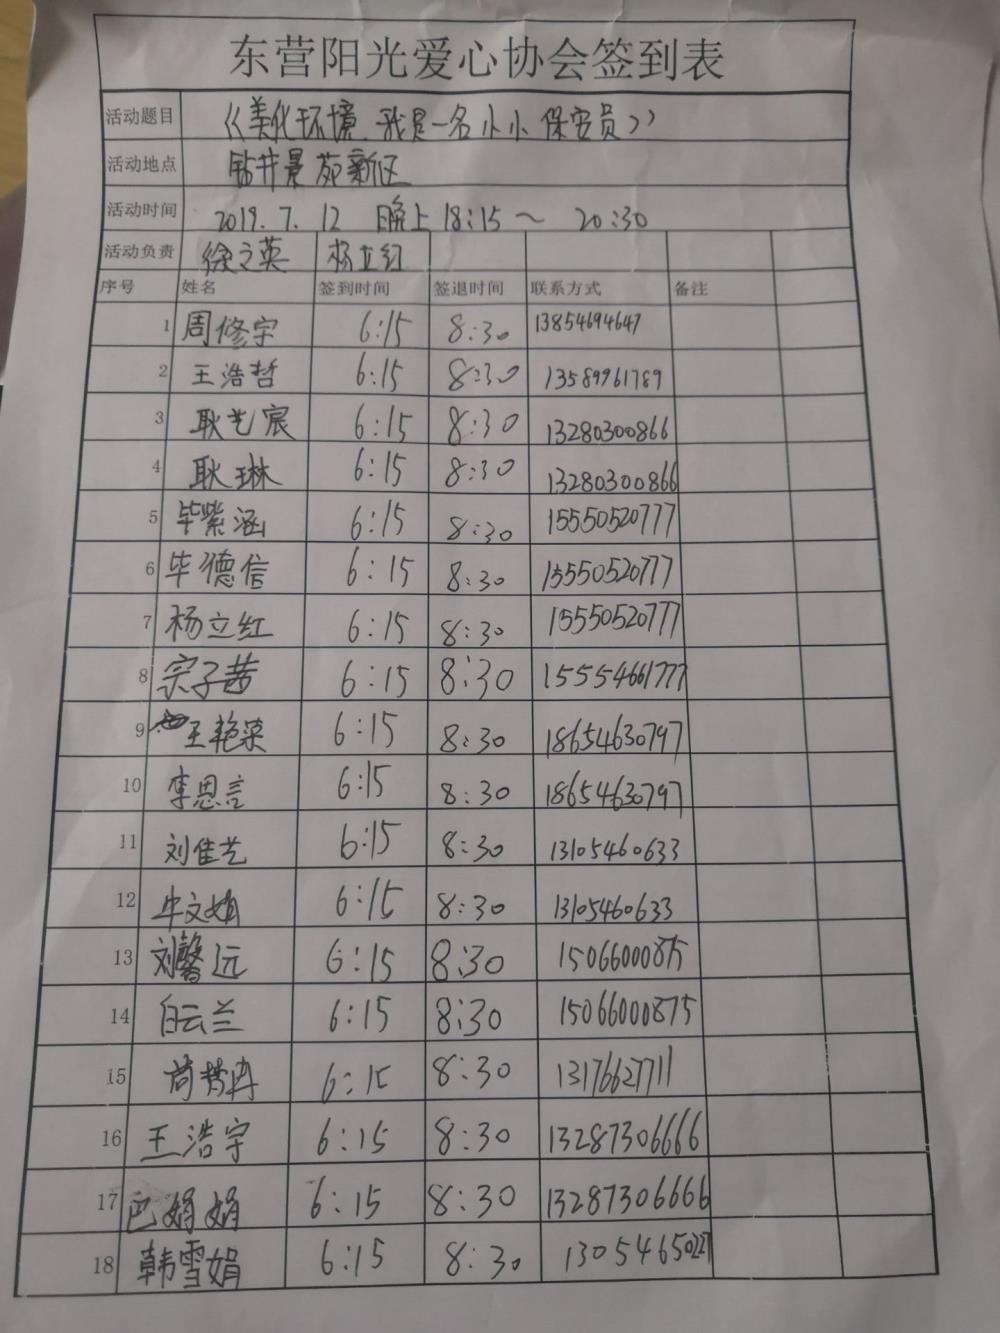 东营阳光爱心协会签到表
活动题目 《美化环境.我是一名小小保安员》
活动地点 钻井景苑新区
活动时间 2019.7.12 晚上18:15～20:30
活动负责 徐之英 杨立红
序号 姓名 签到时间 签退时间 联系方式 备注
1 周修宇 6:15 8:30 13854694647
2 王浩哲 6:15 8:30 13589961789
3 耿艺宸 6:15 8:30 13280300866
4 耿琳 6:15 8:30 13280300866
5 毕紫涵 6:15 8:30 15550520777
6 毕德信 6:15 8:30 15550520777
7 杨立红 6:15 8:30 15550520777
8 宗子茜 6:15 8:30 15554661777
9 王艳荣 6:15 8:30 18654630797
10 李恩言 6:15 8:30 18654630797
11 刘佳艺 6:15 8:30 13105460633
12 牛文娟 6:15 8:30 13105460633
13 刘馨远 6:15 8:30 15066000875
14 白云兰 6:15 8:30 15066000875
15 6:15 8:30 13176627711
16 王浩宇 6:15 8:30 13287306666
17 巴娟娟 6:15 8:30 13287306666
18 韩雪娟 6:15 8:30